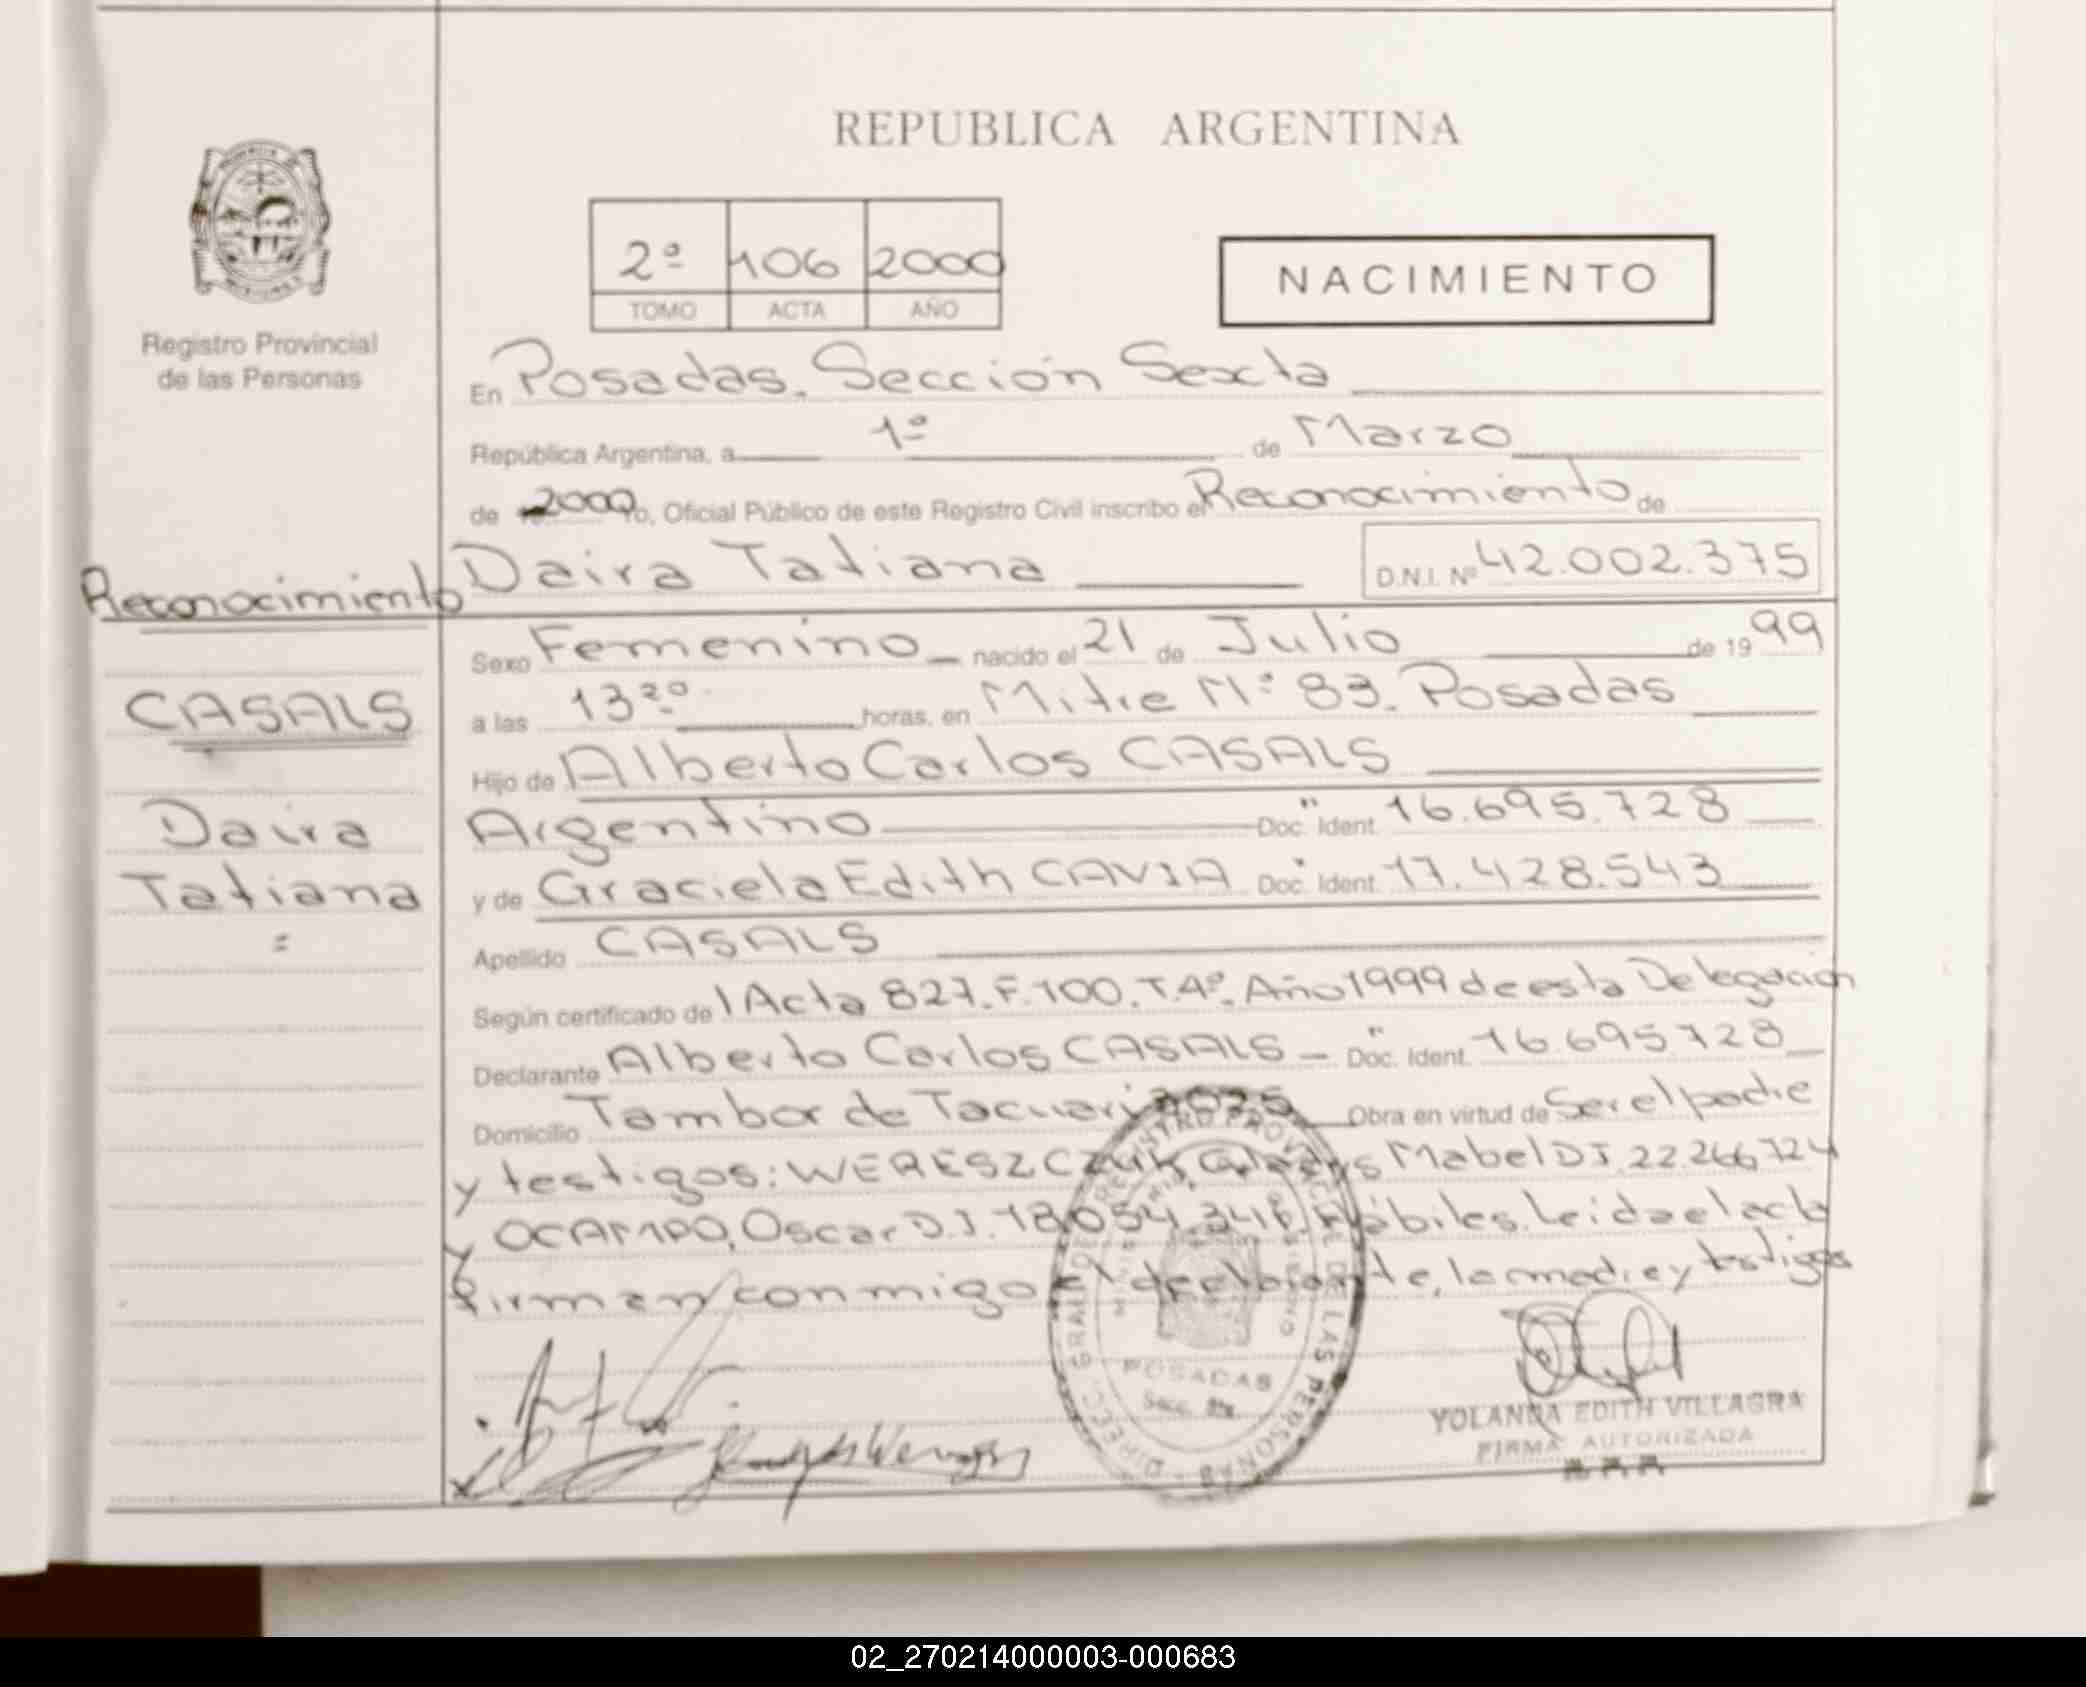 REPUBLICA ARGENTINA
2º 106 2000
TOMO ACTA AÑO
NACIMIENTO
Registro Provincial
de las Personas
En Posadas. Sección Sexta
República Argentina, a 1º de Marzo
de 2000 Yo, Oficial Público de este Registro Civil inscribo el Reconocimiento de
Daira Tatiana D.N.I. Nº 42.002.375
Reconocimiento
CASALS
Daira
Tatiana
=
Sexo Femenino nacido el 21 de Julio de 1999
a las 13 horas. en Mitre Nº 83. Posadas
Hijo de Alberto Carlos CASALS
Argentino Doc. Ident. 16.695.728
y de Graciela Edith CAVIA Doc. Ident. 17.428.543
Apellido CASALS
Según certificado de 1 Acta 827. F. 100. T.4º. Año 1999 de esta Delegación
Declarante Alberto Carlos CASALS Doc. Ident. 16.695.728
Domicilio Tambor de Tacuari Obra en virtud de Ser el padre
y testigos: WERESZCZUK Gladys Mabel DI. 22.266.724
y OCAMPO, Oscar D.I. Hábiles. Leida el acta
firman conmigo el declarante, la madre y testigos
DIREC. GRAL. DE REGISTRO PROVINCIAL DE LAS PERSONAS
POSADAS
YOLANDA EDITH VILLAGRA
FIRMA AUTORIZADA
02_270214000003-000683